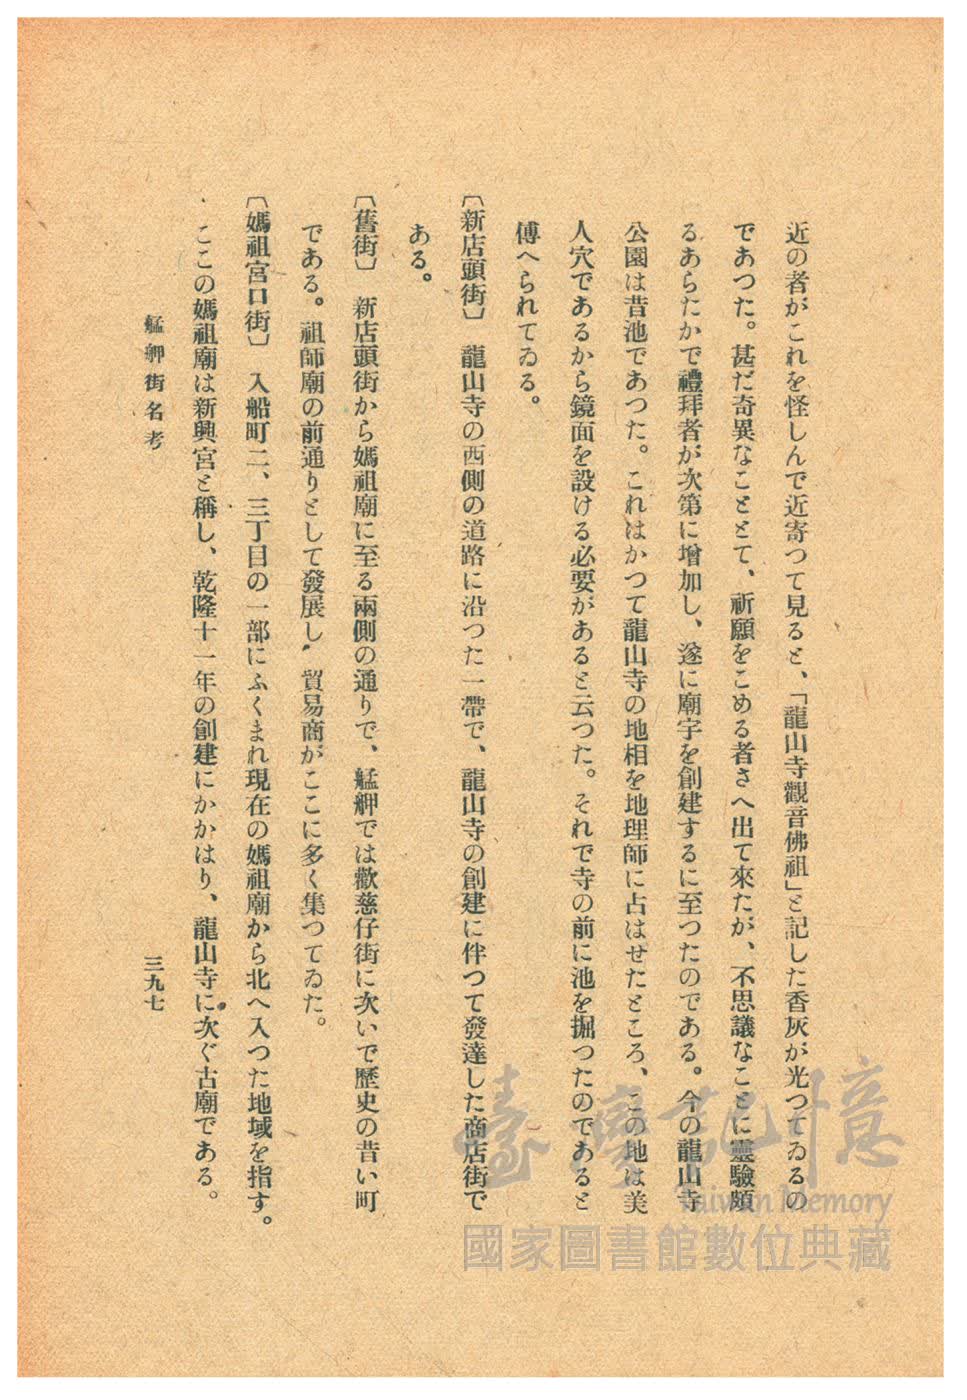 近の者がこれを怪しんで近寄つて見ると、「龍山寺觀音佛祖」と記した香灰が光つてゐるの
であつた。甚だ奇異なこととて、祈願をこめる者さへ出て來たが、不思議なことに靈驗頗
るあらたかで禮拜者が次第に增加し、遂に廟宇を創建するに至つたのである。今の龍山寺
公園は昔池であつた。これはかつて龍山寺の地相を地理師に占はせたところ、この地は美
人穴であるから鏡面を設ける必要があると云つた。それで寺の前に池を掘つたのであると
傳へられてゐる。
〔新店頭街〕 龍山寺の西側の道路に沿つた一帶で、龍山寺の創建に伴つて發達した商店街で
ある。
〔舊街〕 新店頭街から媽祖廟に至る兩側の通りで、艋舺では歡慈仔街に次いで歷史の昔い町
である。祖師廟の前通りとして發展し、貿易商がここに多く集つてゐた。
〔媽祖宮口街〕 入船町二、三丁目の一部にふくまれ現在の媽祖廟から北へ入つた地域を指す。
ここの媽祖廟は新興宮と稱し、乾隆十一年の創建にかかはり、龍山寺に次ぐ古廟である。
艋舺街名考
三九七
臺灣記憶
Taiwan Memory
國家圖書館數位典藏